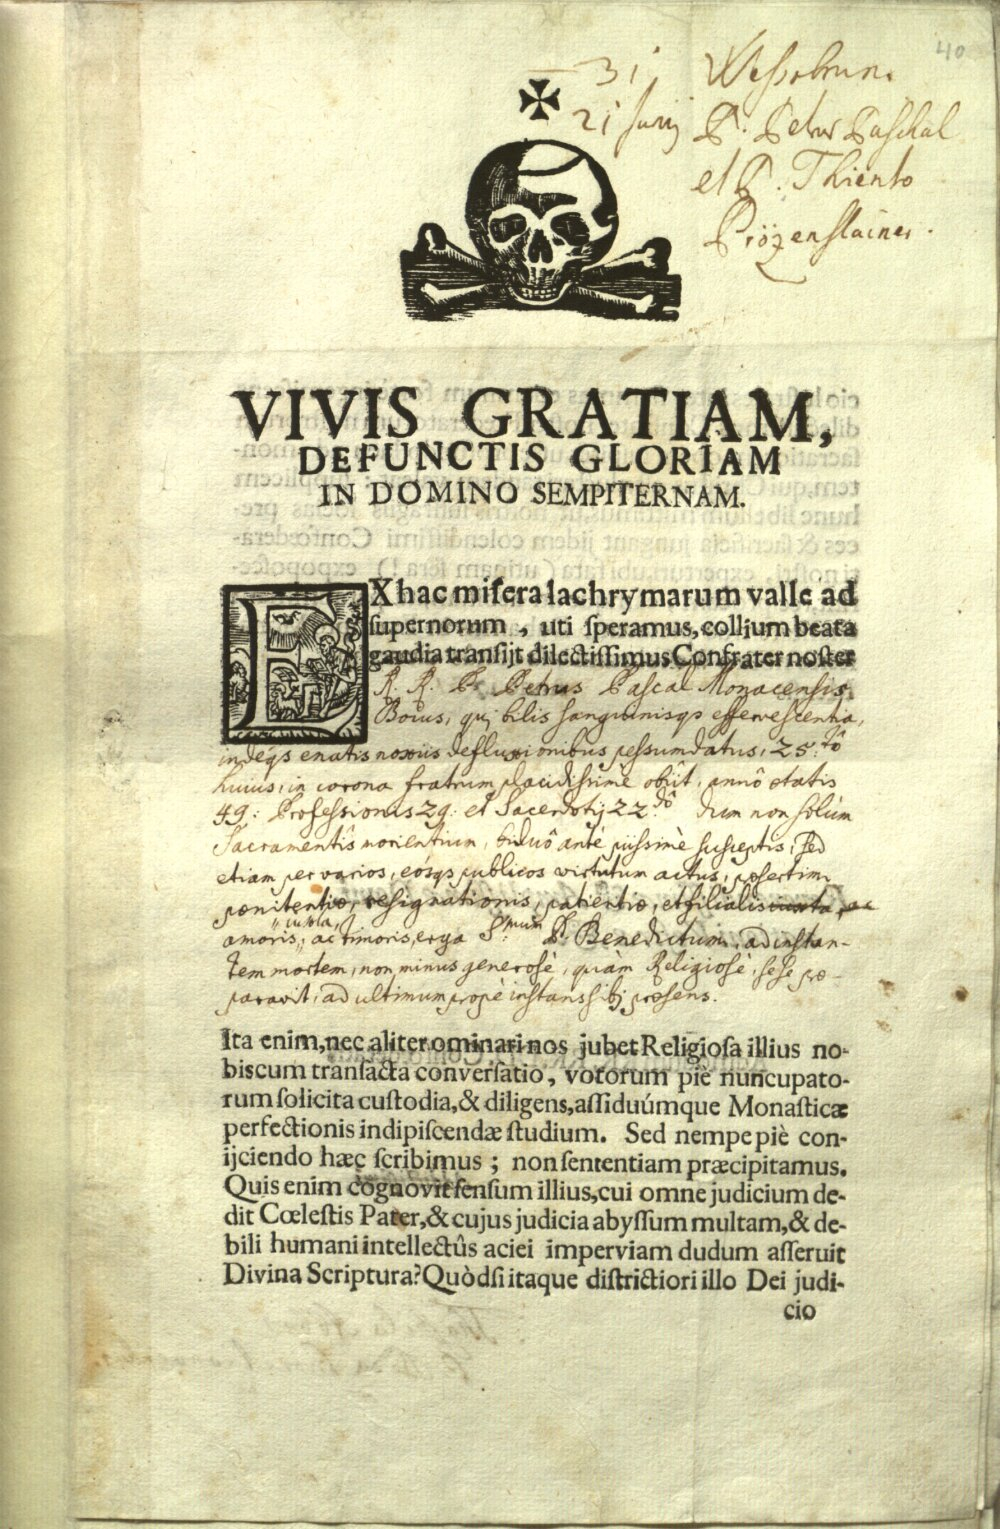 40
31 Wessobrun.
21 Junij P. Petrus Paschal
et P. Thiento
VIVIS GRATIAM,
DEFUNCTIS GLORIAM
IN DOMINO SEMPITERNAM.
EX hac miſera lachrymarum valle ad
ſupernorum, uti ſperamus, collium beata
gaudia tranſijt dilectiſſimus Confrater noſter
R. R. P. Petrus Pascal Monacensis
Boius, quj bilis sanguinisqs effervescentia,
indeqs enatis noxiis defluxionibus pessumdatus, 25.tô
huius, in corona fratrum placidissimè obijt, annô ętatis
49: Professionis 29: et Sacerdotij 22.dô dum non solùm
Sacramentis morientium, biduô antè piissimè susceptis, sed
etiam per varios, eósqs publicos virtutum actus, pręsertim
pœnitentiæ, resignationis, patientiæ, et filialis iuxta, ac
iuxta,
amoris, ac timoris, erga S.mum P. Benedictum, ad instan-
tem mortem, non minus generosè, quàm Religiosè, sese præ-
paravit, ad ultimum propè instans sibj præsens.
Ita enim, nec aliter ominari nos jubet Religioſa illius no-
biscum tranſacta converſatio, votorum piè nuncupato-
rum ſolicita cuſtodia, & diligens, aſſiduúmque Monaſticæ
perfectionis indipiſcendæ ſtudium. Sed nempe piè con-
ijciendo hæc ſcribimus; non ſententiam præcipitamus.
Quis enim cognovit ſenſum illius, cui omne judicium de-
dit Cœleſtis Pater, & cujus judicia abyſſum multam, & de-
bili humani intellectûs aciei imperviam dudum aſſeruit
Divina Scriptura? Quòdſi itaque diſtrictiori illo Dei judi-
cio